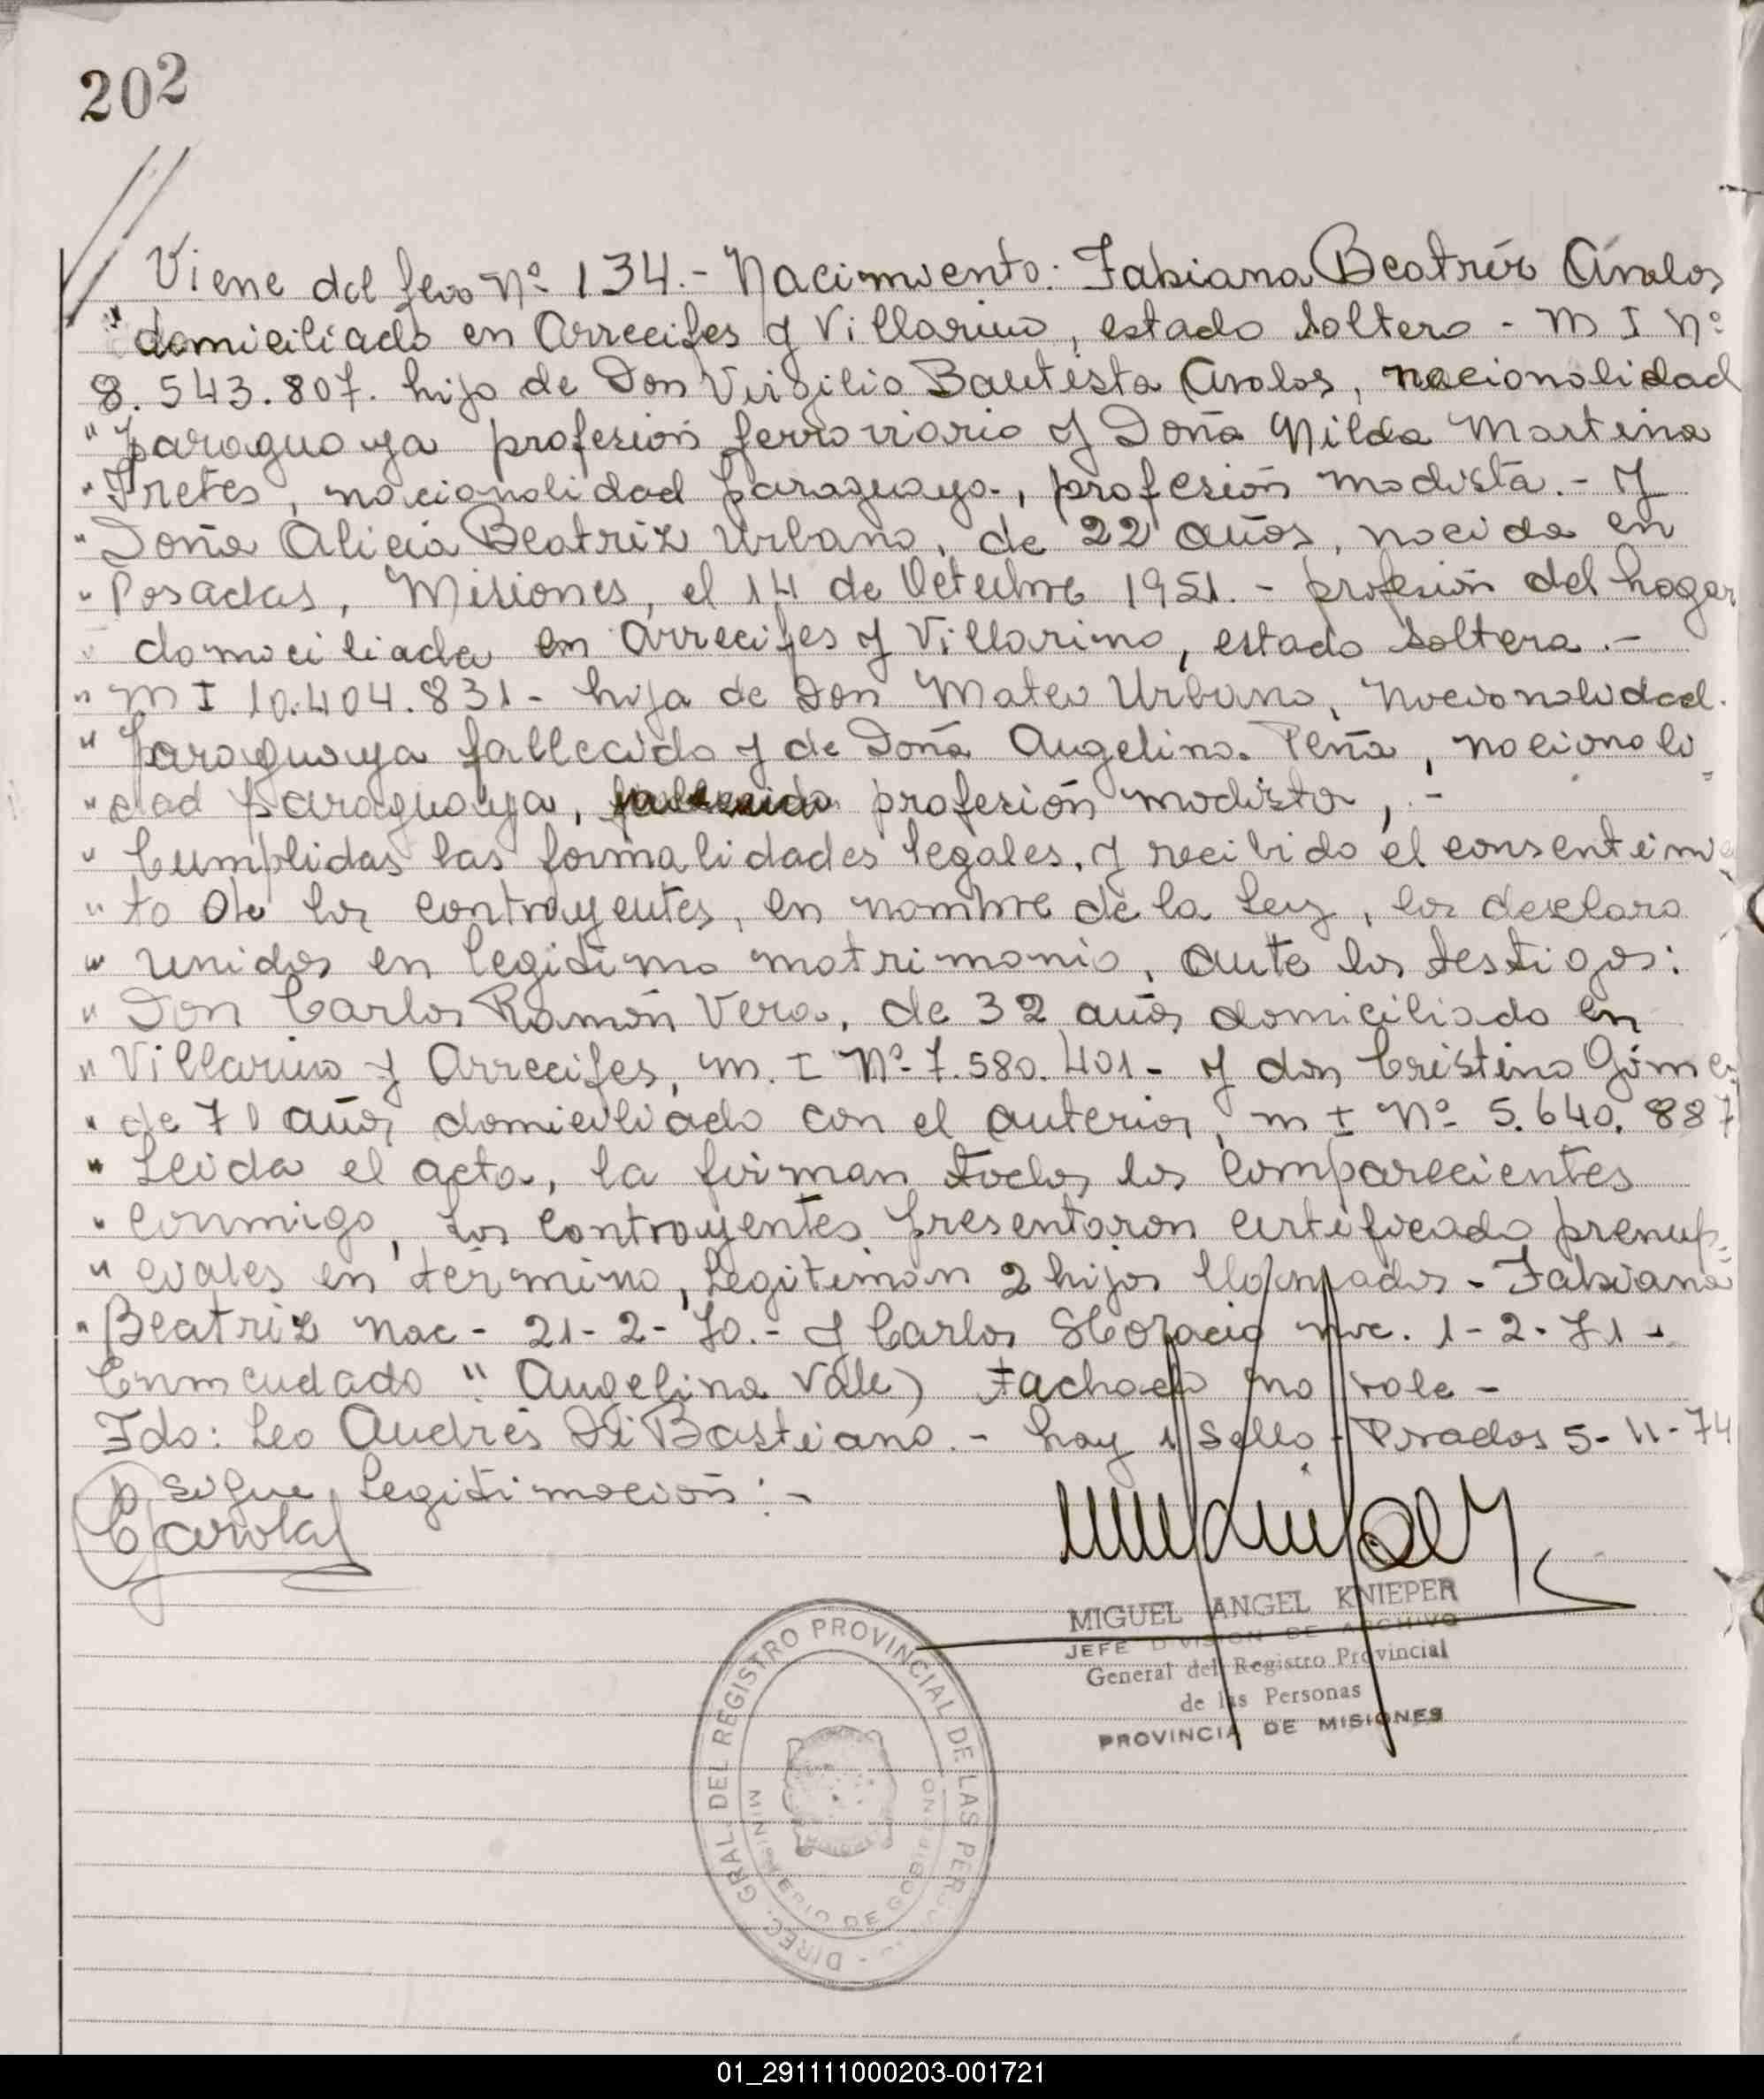 202
Viene del folio Nº 134.- Nacimiento: Fabiana Beatríz Avalos
" domiciliado en Arrecifes y Villarino, estado soltero - M I Nº
8.543.807. hijo de Don Virgilio Bautista Avalos, nacionalidad
" paraguaya profesión ferroviario y Doña Nilda Martina
" Fretes, nacionalidad paraguaya, profesión modista.- Y
" Doña Alicia Beatriz Urbano, de 22 años, nacida en
" Posadas, Misiones, el 14 de Octubre 1951.- profesión del hogar
" domiciliada en Arrecifes y Villarino, estado soltera.-
" M I 10.404.831- hija de Don Mateo Urbano, nacionalidad
" paraguaya fallecido y de Doña Angelina Peña, nacionali
" dad paraguaya, profesión modista, .-
" Cumplidas las formalidades legales, y recibido el consentimie
" to de los contrayentes, en nombre de la Ley, los declaro
" unidos en legitimo matrimonio, ante los testigos:
" Don Carlos Ramón Vera, de 32 años domiciliado en
" Villarino y Arrecifes, M. I Nº 7.580.401- y don Cristino Góme
" de 71 años domiciliado con el anterior, m I Nº 5.640.887
" Leida el acta, la firman todos los comparecientes
" conmigo, los contrayentes presentaron certificado prenup=
" ciales en término, legitiman 2 hijos llamados - Fabiana
" Beatriz nac- 21-2-70.- y Carlos Horacio nac. 1-2-71-
Enmendado " Angelina Vale) Tachado no vale -
Fdo: Leo Andrés Di Bastiano.- hay 1 Sello - Posadas 5-11-74
Sigue legitimación:-
MIGUEL ANGEL KNIEPER
JEFE DIVISION DE ARCHIVO
General del Registro Provincial
de las Personas
PROVINCIA DE MISIONES
DIREC. GRAL. DEL REGISTRO PROVINCIAL DE LAS PERSONAS
MINISTERIO DE GOBIERNO
01_291111000203-001721